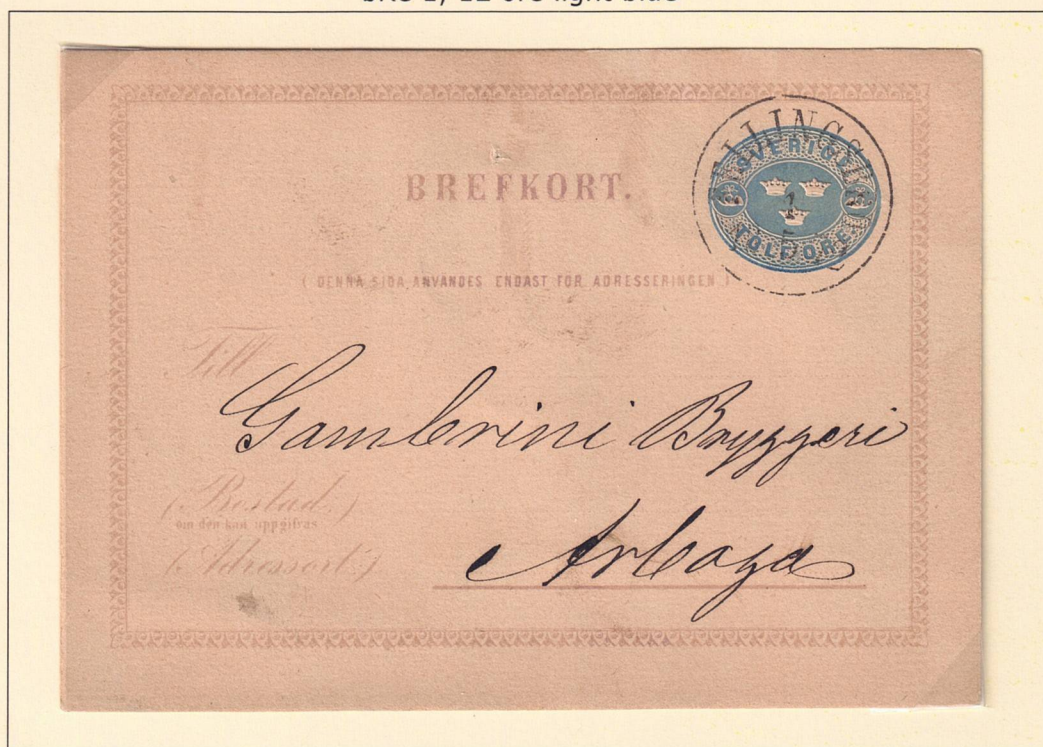 BREFKORT.
SVERIGE
TOLF ÖRE
( DENNA SIDA ANVÄNDES ENDAST FÖR ADRESSERINGEN. )
Till
Gambrini Bryggeri
(Bostad.)
om den kan uppgifvas
(Adressort:)
Arboga